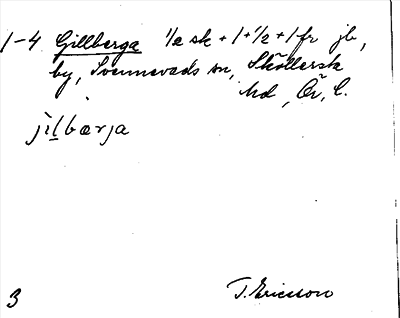 1-4 Gillberga 1/2 sk + 1 + 1/2 + 1 fr jb,
by, Svennevads sn, Sköllersta
hd, Ör, l.
jìlbærja
3
T. Ericsson